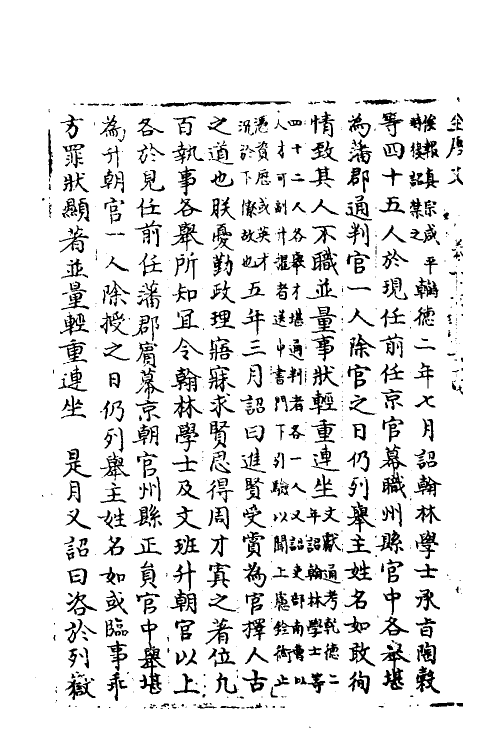 後報真宗咸平
時復詔禁之
德二年七月詔翰林學士承旨陶穀
等四十五人於現任前任京官幕職州縣官中各舉堪
為藩郡通判官一人除官之日仍列舉主姓名如敢徇
情致其人不職並量事狀輕重連坐
文獻通考乾德二
年詔翰林學士等
四十二人各舉才堪通判者各一人又詔吏部南曹以
人才可副升擢者送中書門下引驗以聞上慮銓衡止
憑資歷或英才
沉於下僚故也
五年三月詔曰進賢受賞為官擇人古
之道也朕憂勤政理寤寐求賢思得周才寘之著位九
百執事各舉所知宜令翰林學士及文班升朝官以上
各於見任前任藩郡賓幕京朝官州縣正員官中舉堪
為升朝官一人除授之日仍列舉主姓名如或臨事乖
方罪狀顯著並量輕重連坐 是月又詔曰咨於列嶽